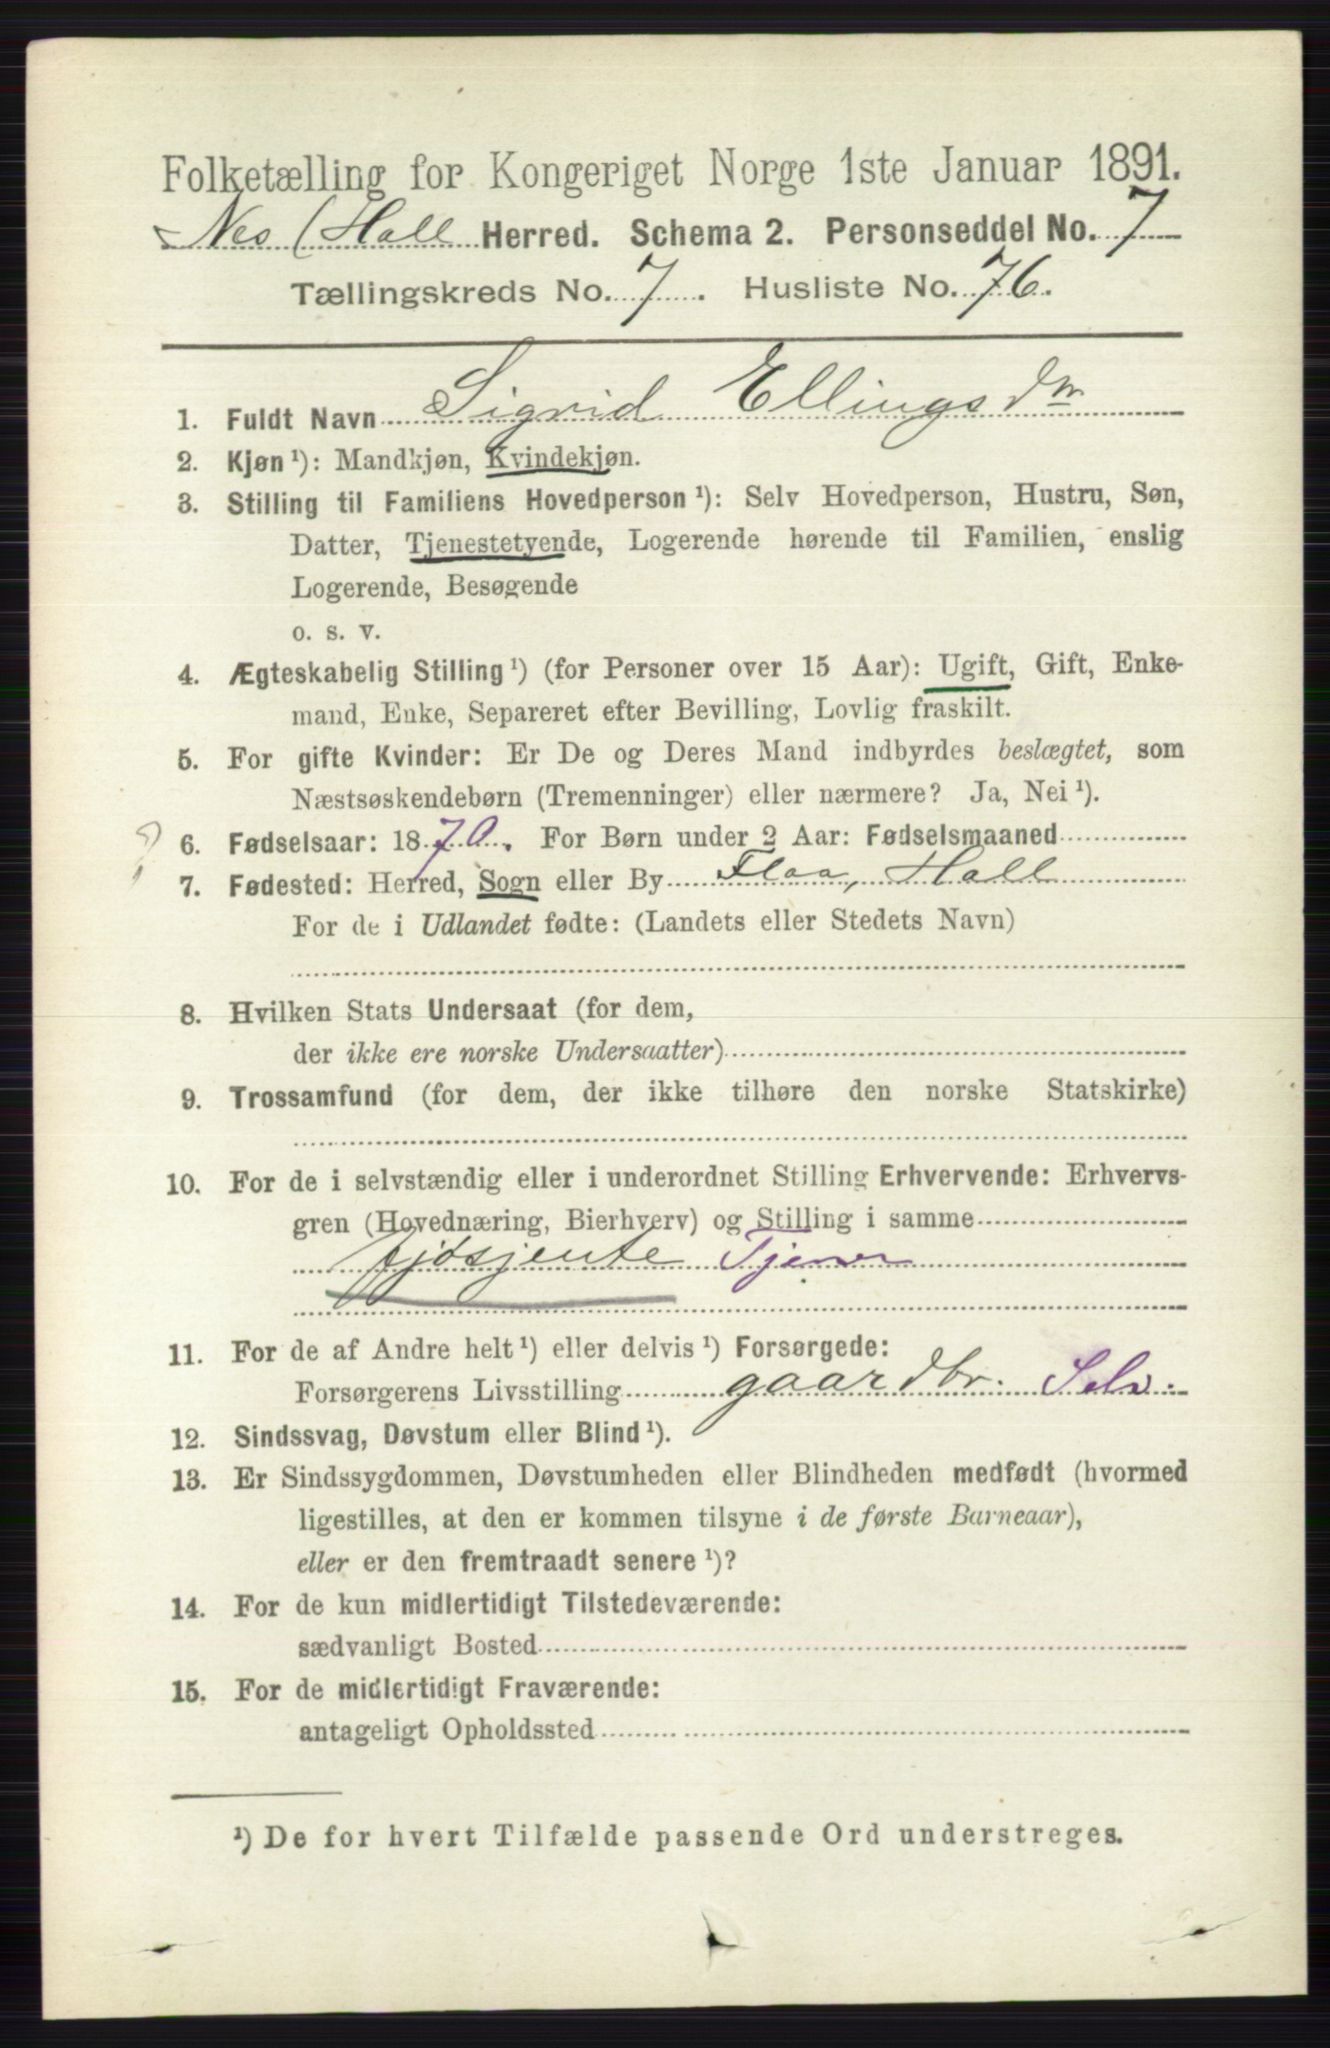 Folketælling for Kongeriget Norge 1ste Januar 1891.
Nes (Hall Herred. Schema 2. Personseddel No. 7
Tællingskreds No. 7. Husliste No. 76.
1. Fuldt Navn Sigrid Ellingsdr
2. Kjøn ¹): Mandkjøn, Kvindekjøn.
3. Stilling til Familiens Hovedperson ¹): Selv Hovedperson, Hustru, Søn,
Datter, Tjenestetyende, Logerende hørende til Familien, enslig
Logerende, Besøgende
o. s. v.
4. Ægteskabelig Stilling ¹) (for Personer over 15 Aar): Ugift, Gift, Enke-
mand, Enke, Separeret efter Bevilling, Lovlig fraskilt.
5. For gifte Kvinder: Er De og Deres Mand indbyrdes beslægtet, som
Næstsøskendebørn (Tremenninger) eller nærmere? Ja, Nei ¹).
6. Fødselsaar: 1870. For Børn under 2 Aar: Fødselsmaaned
7. Fødested: Herred, Sogn eller By Flaa, Hall
For de i Udlandet fødte: (Landets eller Stedets Navn)
8. Hvilken Stats Undersaat (for dem,
der ikke ere norske Undersaatter)
9. Trossamfund (for dem, der ikke tilhøre den norske Statskirke)
10. For de i selvstændig eller i underordnet Stilling Erhvervende: Erhvervs-
gren (Hovednæring, Bierhverv) og Stilling i samme
fjøsjente Tjener
11. For de af Andre helt ¹) eller delvis ¹) Forsørgede:
Forsørgerens Livsstilling gaardbr. Selv.
12. Sindssvag, Døvstum eller Blind ¹).
13. Er Sindssygdommen, Døvstumheden eller Blindheden medfødt (hvormed
ligestilles, at den er kommen tilsyne i de første Barneaar),
eller er den fremtraadt senere ¹)?
14. For de kun midlertidigt Tilstedeværende:
sædvanligt Bosted
15. For de midlertidigt Fraværende:
antageligt Opholdssted
¹) De for hvert Tilfælde passende Ord understreges.